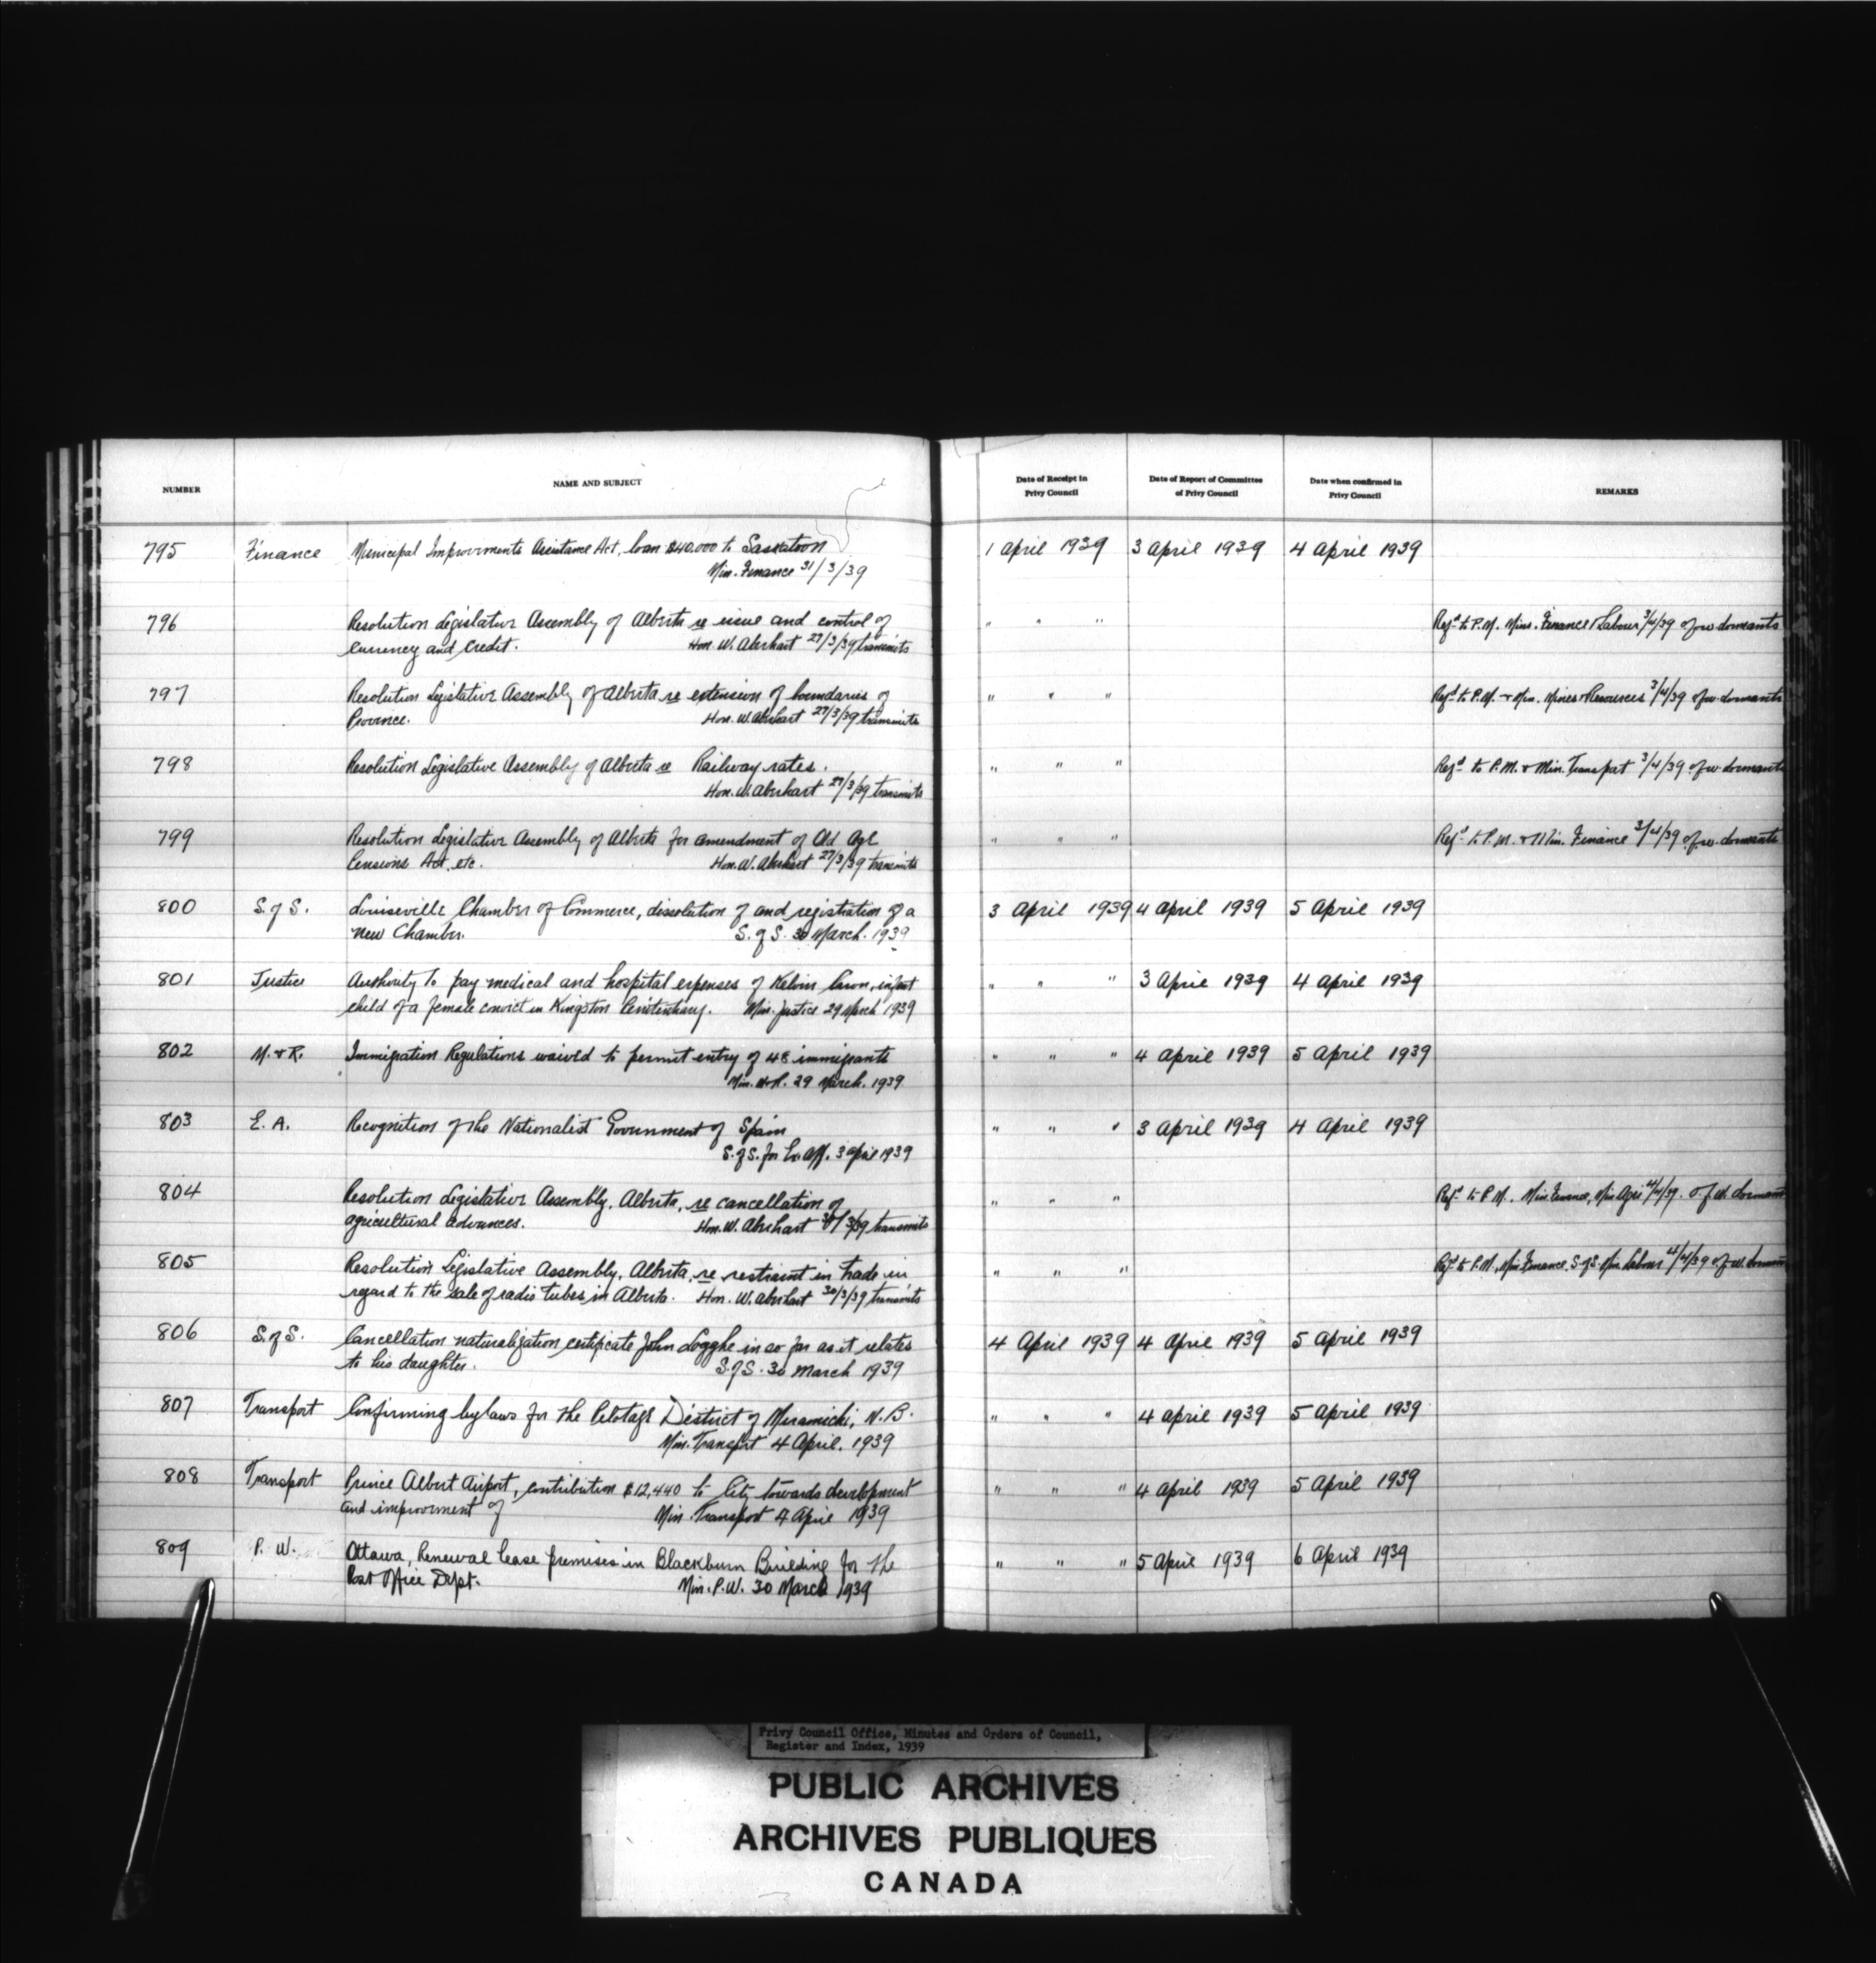 NUMBER
NAME AND SUBJECT
Date of Receipt in
Privy Council
Date of Report of Committee
of Privy Council
Date when confirmed in
Privy Council
REMARKS
795 Finance Municipal Improvements Assistance Act, loan $40,000 to Saskatoon 1 April 1939 3 April 1939 4 April 1939
Min. Finance 31/3/39
796 Resolution Legislative Assembly of Alberta re issue and control of " " " Refd to P.M. Mins. Finance & Labour 3/4/39 of w dormants
Currency and Credit. Hon. W. Aberhart 27/3/39 transmits
797 Resolution Legislative Assembly of Alberta re extension of boundaries of " " " Refd to P.M. & Min. Mines & Resources 3/4/39 of w. dormants
Province. Hon. W. Aberhart 27/3/39 transmits
798 Resolution Legislative Assembly of Alberta re Railway rates. " " " Refd to P.M. & Min. Transport 3/4/39 of w dormants
Hon. W. Aberhart 27/3/39 transmits
799 Resolution Legislative Assembly of Alberta for amendment of Old Age " " " Refd to P.M. & Min. Finance 3/4/39 of w. dormants
Pensions Act, etc. Hon. W. Aberhart 27/3/39 transmits
800 S. of S. Louiseville Chamber of Commerce, dissolution of and registration of a 3 April 1939 4 April 1939 5 April 1939
new Chamber. S. of S. 30 March. 1939
801 Justice Authority to pay medical and hospital expenses of Kelvin, infant " " " 3 April 1939 4 April 1939
child of a female convict in Kingston Penitentiary. Min. Justice 29 March 1939
802 M. & R. Immigration Regulations waived to permit entry of 48 immigrants " " " 4 April 1939 5 April 1939
Min. M&R. 29 March. 1939
803 E. A. Recognition of the Nationalist Government of Spain " " " 3 April 1939 4 April 1939
S. of S. for Ex. Aff. 3 April 1939
804 Resolution Legislative Assembly, Alberta, re cancellation of " " " Refd to P.M. Min Finance, Min Agri 4/4/39. of w. dormant
agricultural advances. Hon. W. Aberhart /3/39 transmits
805 Resolution Legislative Assembly, Alberta, re restraint in trade in " " " Refd to P.M., Min Finance, S of S. Min Labour 4/4/39 of w. dormant
regard to the sale of radio tubes in Alberta. Hon. W. Aberhart 30/3/39 transmits
806 S. of S. Cancellation naturalization certificate John Logghe in so far as it relates 4 April 1939 4 April 1939 5 April 1939
to his daughter. S. of S. 30 March 1939
807 Transport Confirming bylaws for the Pilotage District of Miramichi, N.B. " " " 4 April 1939 5 April 1939
Min. Transport 4 April. 1939
808 Transport Prince Albert Airport, contribution $12,440 to City towards development " " " 4 April 1939 5 April 1939
and improvement of Min. Transport 4 April 1939
809 P. W. Ottawa, Renewal lease premises in Blackburn Building for the " " " 5 April 1939 6 April 1939
Post Office Dept. Min. P.W. 30 March 1939
Privy Council Office, Minutes and Orders of Council,
Register and Index, 1939
PUBLIC ARCHIVES
ARCHIVES PUBLIQUES
CANADA